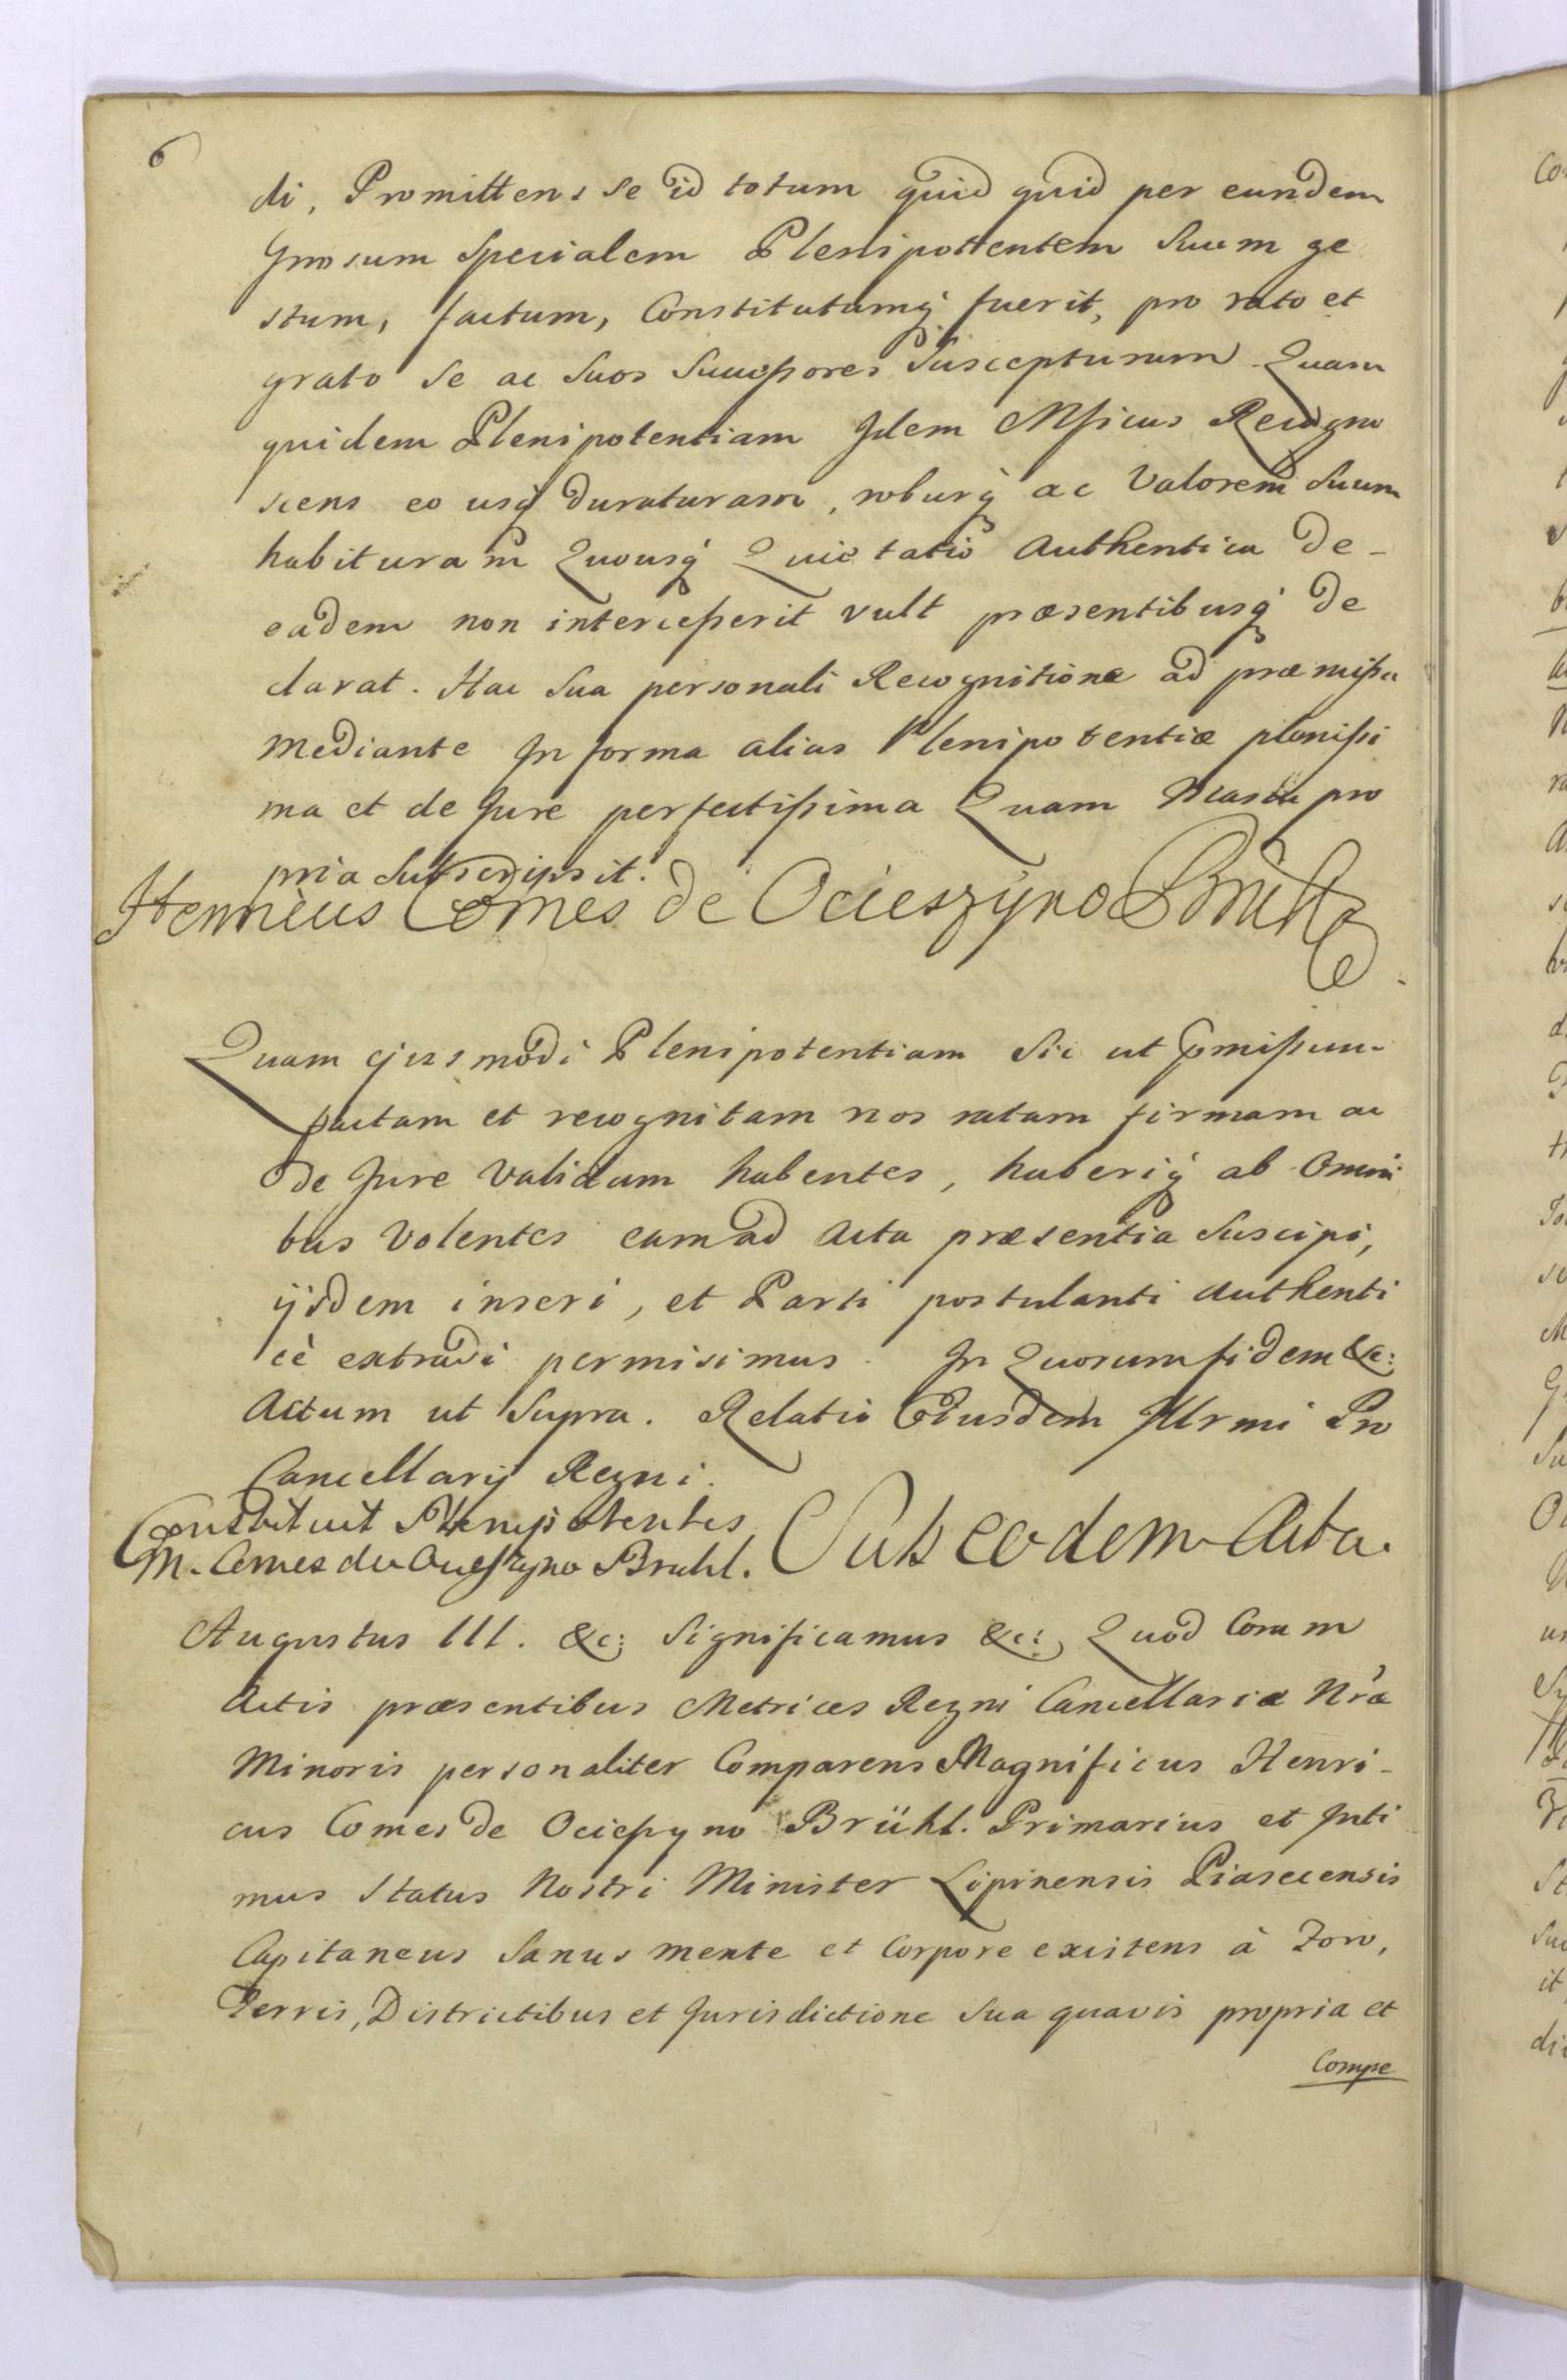 6
di, Promittens se id totum quid quid per eundem
Gnosum Specialem Plenipottentem Suum ge
stum, factum, Constitutumq́ fuerit, pro rato et
grato se ac Suos Successores Suscepturum. Quam
quidem Plenipotentiam Idem Mficus Recogno
scens eo usq́ duraturam, roburq́ ac Valorem Suum
habituram Quousq́ Quietatio Authentica de-
eadem non intercesserit vult præsentibusq́ de
clarat. Hac Sua personali Recognitione ad præmissa
mediante In forma alias Plenipotentiæ plenissi
ma et de Jure perfectissima Quam Manu pro
pria Subscripsit.
Henricus Comes de Ocieszyno Brühl
Quam ejusmodi Plenipotentiam Sic ut pmissum
factam et recognitam nos ratam firmam ac
de Jure Validam habentes, haberiq́ ab Omni
bus Volentes eam ad Acta præsentia Suscipi,
ijsdem inseri, et Parti postulanti Authenti
cè extradi permisimus. In Quorum fidem &c:
Actum ut Supra. Relatio Ejusdem Illrmi Pro
Cancellarij Regni.
Constituit Plenipotentes
M. Comes de Ociessyno Bruhl.
Sub eodem Acta.
Augustus III. &c: Significamus &c: Quod Coram
Actis præsentibus Metrices Regni Cancellariæ Nr̃æ
Minoris personaliter Comparens Magnificus Henri-
cus Comes de Ociessyno Brühl. Primarius et Inti
mus Status Nostri Minister Lipinensis Piasecensis
Capitaneus Sanus mente et Corpore existens à Foro,
Terris, Districtibus et Jurisdictione Sua quavis propria et
Compe